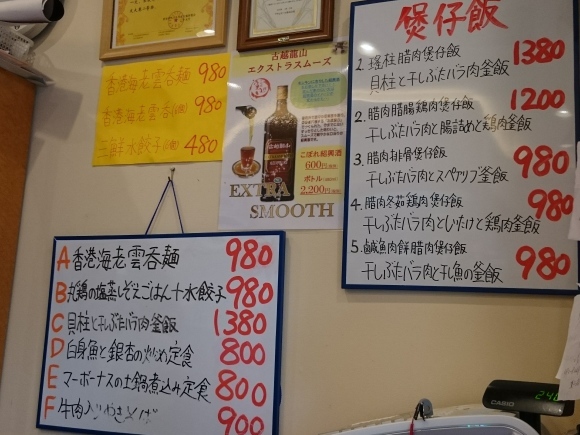 香港海老雲呑麺 980
香港海老雲呑 980
三鮮水餃子 480
古越龍山
エクストラスムーズ
こぼれ紹興酒
600円
ボトル
2,200円
EXTRA
SMOOTH
煲仔飯
1. 瑤柱腊肉煲仔飯 1380
貝柱と干しぶたバラ肉釜飯
2. 腊肉腊腸鶏肉煲仔飯 1200
干しぶたバラ肉と腸詰めと鶏肉釜飯
3. 腊肉排骨煲仔飯 980
干しぶたバラ肉とスペアリブ釜飯
4. 腊肉冬菇鶏肉煲仔飯 980
干しぶたバラ肉としいたけと鶏肉釜飯
5. 鹹魚肉餅腊肉煲仔飯 980
干しぶたバラ肉と干し魚の釜飯
A 香港海老雲呑麺 980
B 丸鶏の塩蒸しぞえごはん十水餃子 980
C 貝柱と干しぶたバラ肉釜飯 1380
D 白身魚と銀杏の炒め定食 800
E マーボーナスの土鍋煮込み定食 800
F 牛肉入りやきそば 900
CASIO